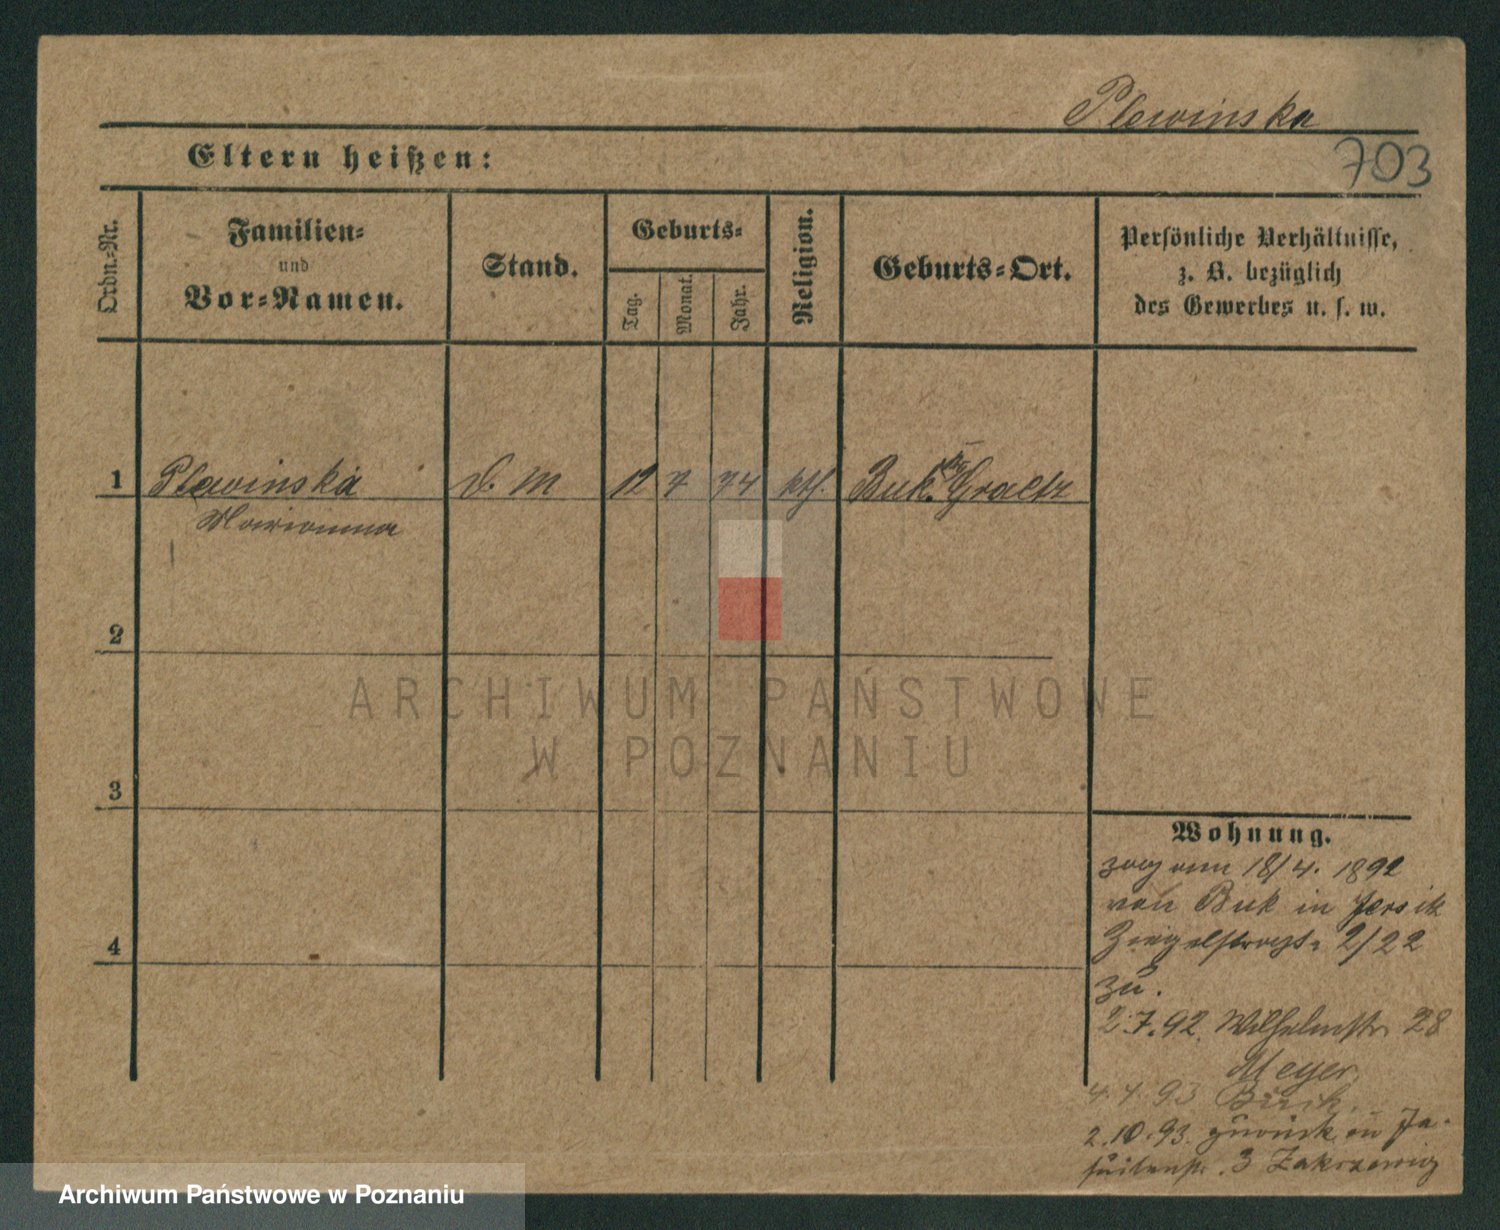 Plewinska
703
Eltern heißen:
Ordn.-Nr.
Familien-
und
Vor-Namen.
Stand.
Geburts-
Tag.
Monat.
Jahr.
Religion.
Geburts-Ort.
Persönliche Verhältnisse,
z. B. bezüglich
des Gewerbes u. s. w.
1 Plewinska D. M 12 7 74 kth. Buk Graetz
Marianna
2
3
4
ARCHIWUM PAŃSTWOWE
W POZNANIU
Wohnung.
zog am 18/4. 1892
von Buk in Jersitz
Ziegelstraße 2/22
zu.
2.7.92. Wilhelmstr. 28
Meyer
4.4.93 Buk
2.10.93. zurück in Je-
suitenstr. 3 Zakrzewicz
Archiwum Państwowe w Poznaniu